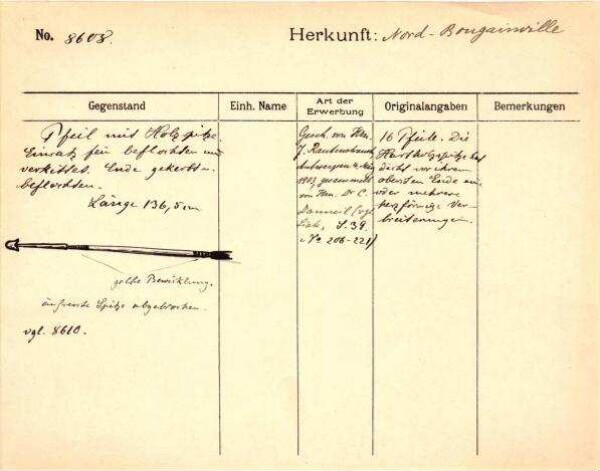 No. 8608.
Herkunft: Nord-Bougainville
Gegenstand
Einh. Name
Art der Erwerbung
Originalangaben
Bemerkungen
Pfeil mit Holzspitze.
Einsatz fein beflochten und
verkittet. Ende gekerbt u.
beflochten.
Länge 136,5 cm
gelbe Bewicklung.
äußerste Spitze abgebrochen.
vgl. 8610.
Gesch. von Hrn.
J. Rautenstrauch
Antwerpen
1903, gesammelt
von Hrn. Dr C.
Danneil (vgl.
S. 39.
No 206-221)
16 Pfeile. Die
Hartholzspitze hat
dicht vor ihrem
obersten Ende ein
oder mehrere
herzförmige Ver-
breiterungen.